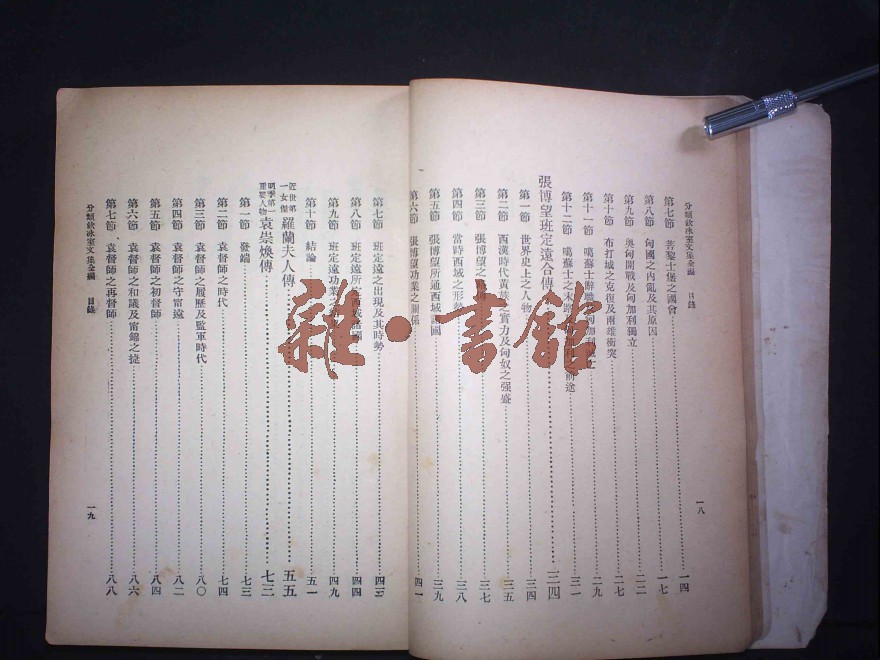 分類飲冰室文集全編 目錄
一八
第七節 菩黎士堡之國會 一四
第八節 匈國之內亂及其原因 一七
第九節 奧匈開戰及匈加利獨立 二二
第十節 布打城之克復及兩雄衝突 二七
第十一節 噶蘇士辭職 匈加利 二九
第十二節 噶蘇士之末路 前途 三一
張博望班定遠合傳 三四
第一節 世界史上之人物 三四
第二節 西漢時代黃族之實力及匈奴之强盛 三五
第三節 張博望之 三七
第四節 當時西域之形勢 三八
第五節 張博望所通西域 國 三九
第六節 張博望功業之關係 四一
第七節 班定遠之出現及其時勢 四三
第八節 班定遠所 西域諸國 四四
第九節 班定遠功業之 四九
第十節 結論 五一
近世第一女傑 羅蘭夫人傳 五五
明季第一重要人物 袁崇煥傳 七三
第一節 發端 七三
第二節 袁督師之時代 七四
第三節 袁督師之履歷及監軍時代 八〇
第四節 袁督師之守甯遠 八二
第五節 袁督師之初督師 八四
第六節 袁督師之和議及甯錦之捷 八六
第七節 袁督師之再督師 八八
分類飲冰室文集全編 目錄
一九
雜·書館